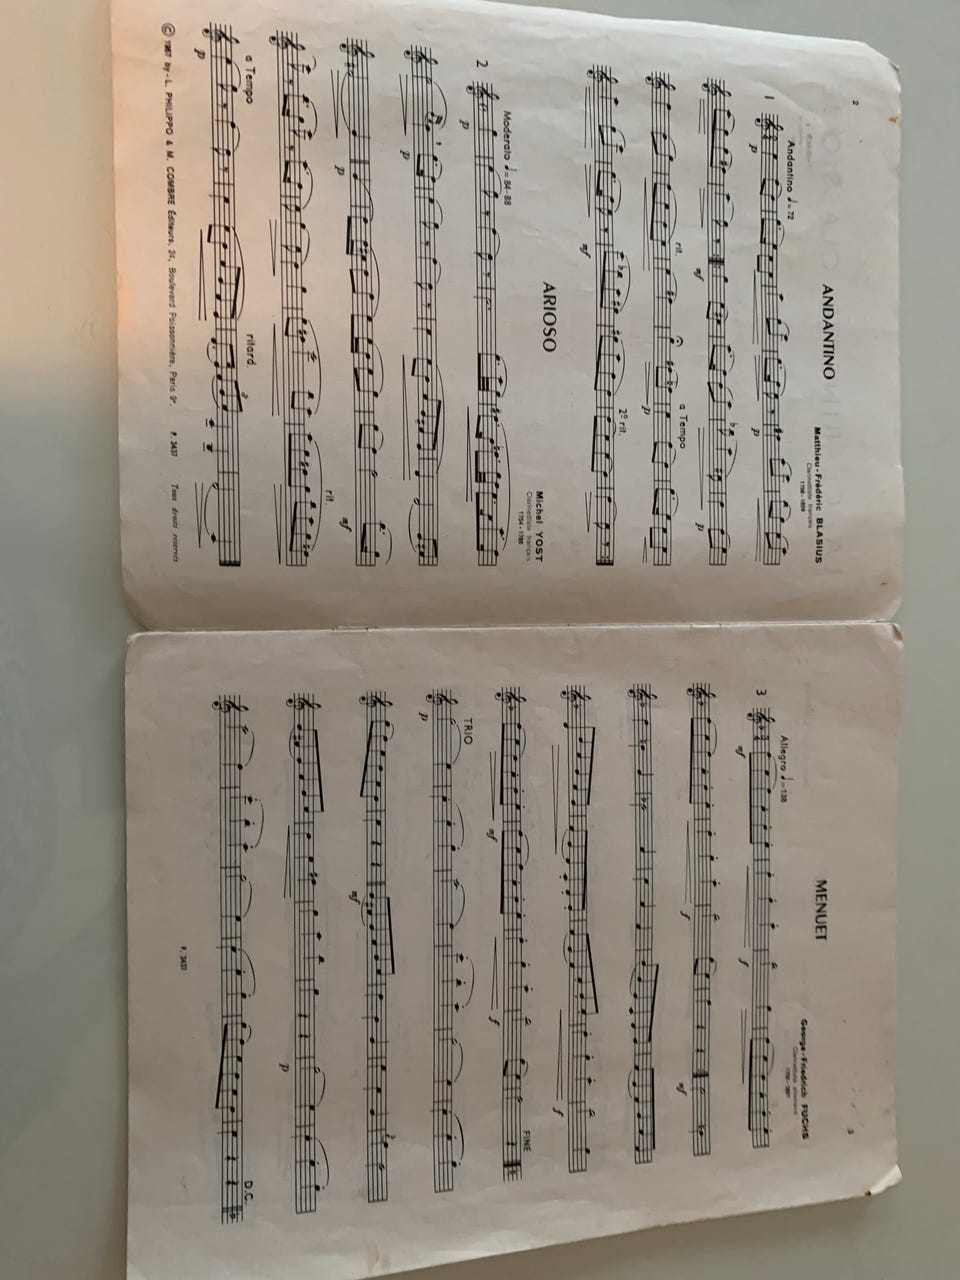 2
ANDANTINO
Matthieu-Frédéric BLASIUS
Clarinettiste français
1758-1829
1
Andantino ♩=72
p
p
mf
p
rit.
a Tempo
p
mf
2º rit.
ARIOSO
Michel YOST
Clarinettiste français
1754-1786
2
Moderato ♩=84-88
p
p
p
mf
rit.
a Tempo
ritard.
p
© 1987 by - L. PHILIPPO & M. COMBRE Éditeurs, 24, Boulevard Poissonnière, Paris 9e.
P. 3437
Tous droits réservés
3
MENUET
George-Friedrich FUCHS
3
Allegro ♩=138
mf
f
f
mf
f
mf
f
FINE
TRIO
p
mf
p
D.C.
P. 3437